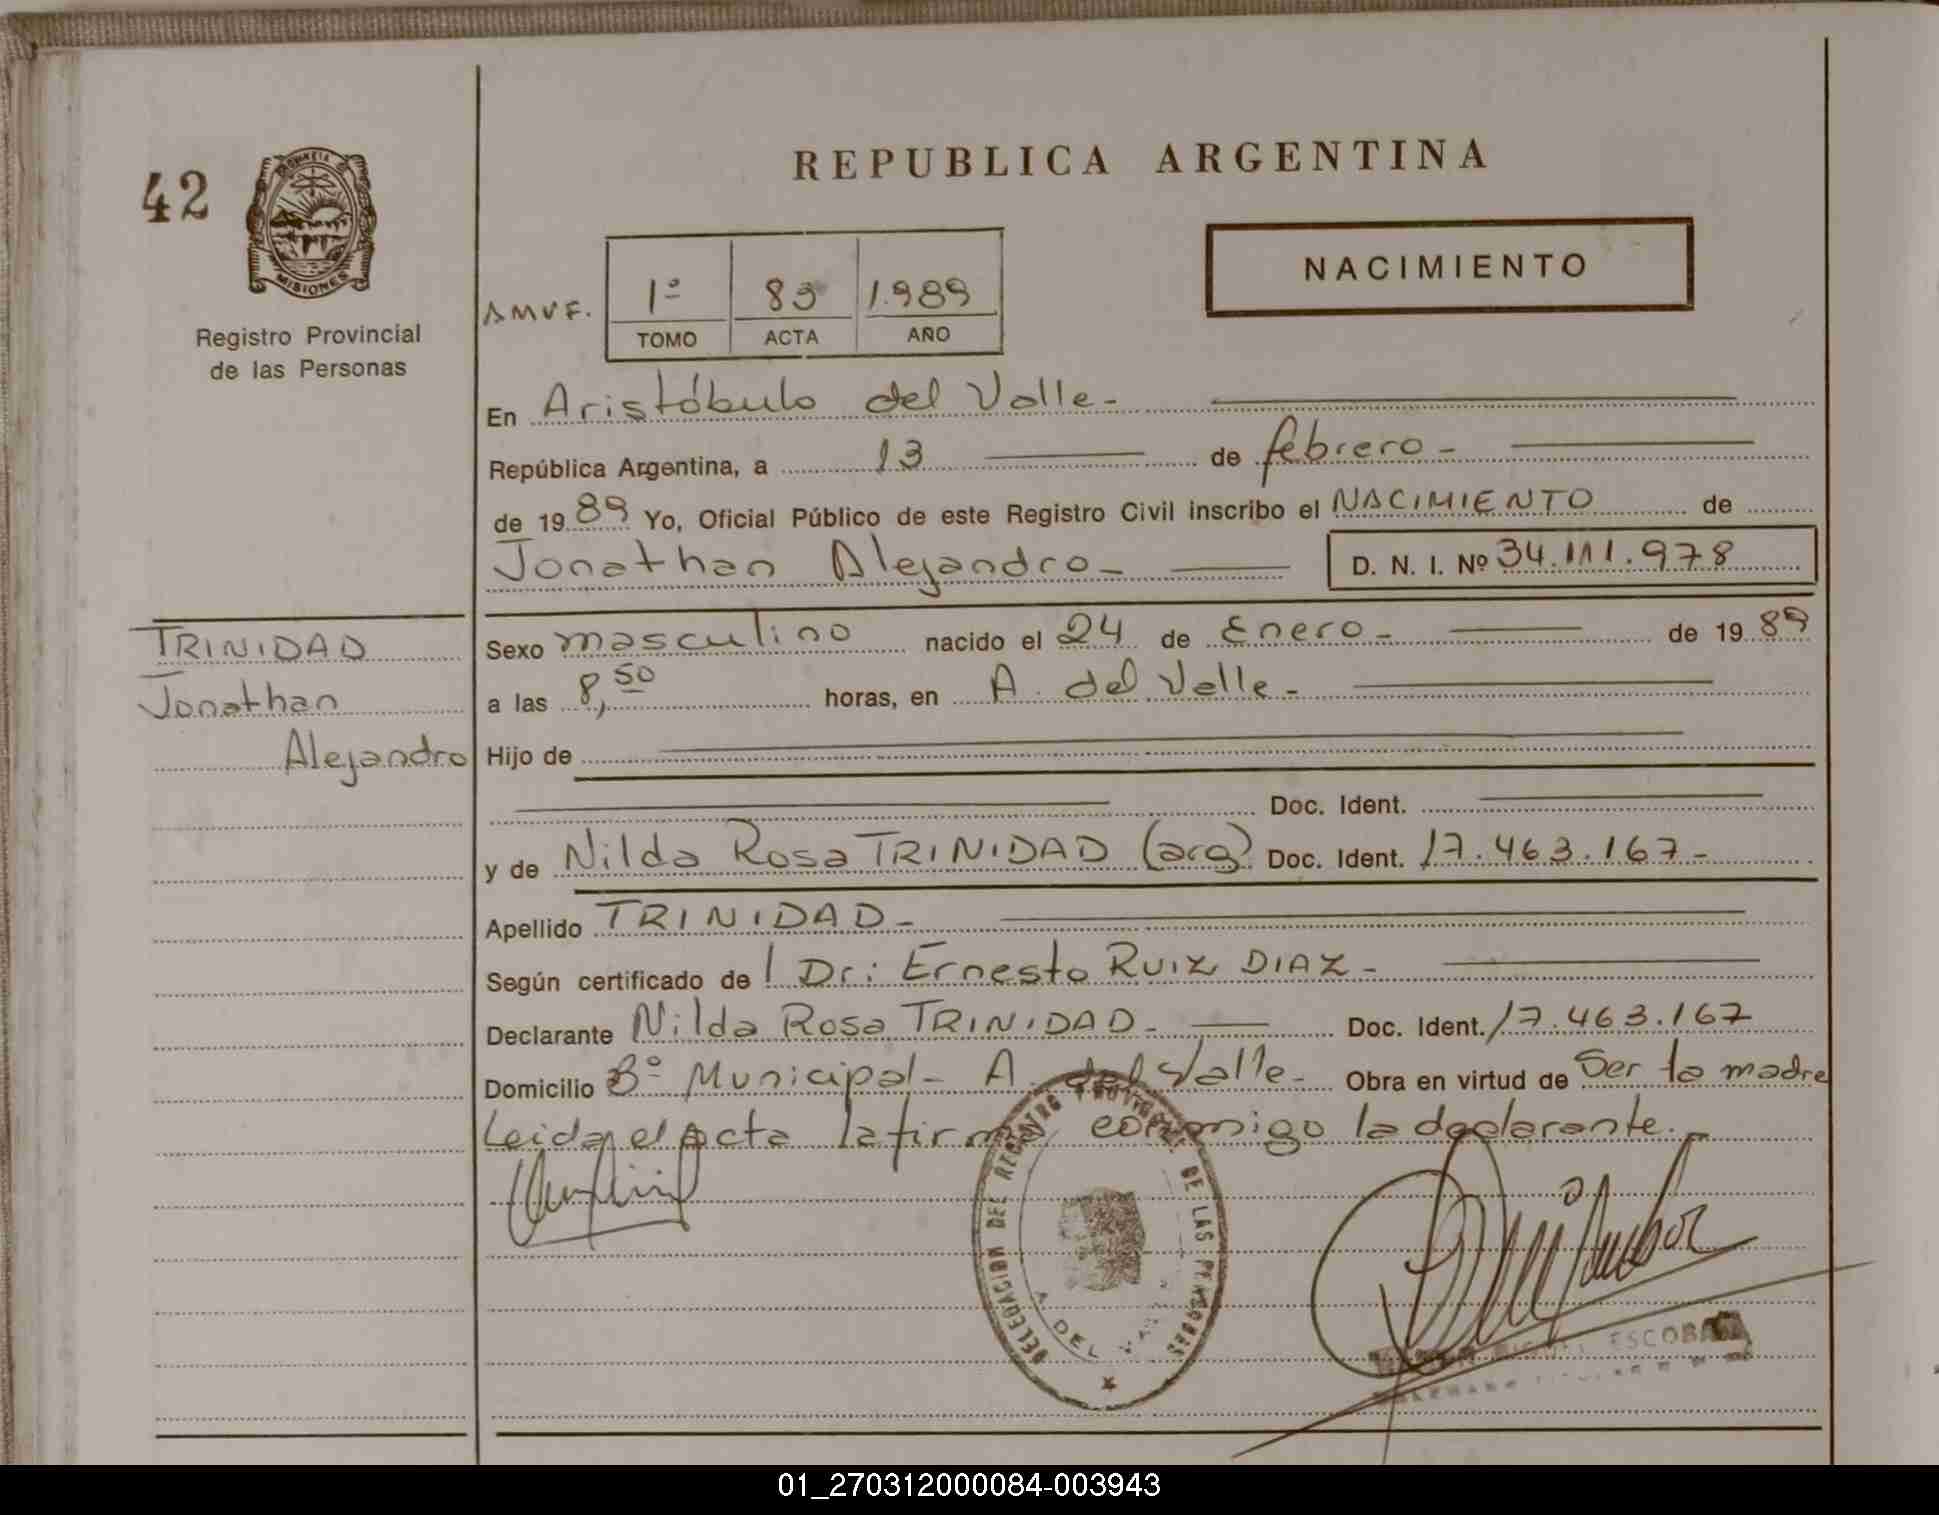 REPUBLICA ARGENTINA
42
PROVINCIA
MISIONES
Registro Provincial
de las Personas
NACIMIENTO
1º 83 1.989
TOMO ACTA AÑO
En Aristóbulo del Valle-
República Argentina, a 13 de febrero-
de 1989 Yo, Oficial Público de este Registro Civil inscribo el NACIMIENTO de
Jonathan Alejandro- D. N. I. Nº 34.111.978
TRINIDAD
Jonathan
Alejandro
Sexo masculino nacido el 24 de Enero- de 1989
a las 8,50 horas, en A. del Valle-
Hijo de
Doc. Ident.
y de Nilda Rosa TRINIDAD (arg) Doc. Ident. 17.463.167-
Apellido TRINIDAD-
Según certificado de l Dr: Ernesto RUIZ DIAZ-
Declarante Nilda Rosa TRINIDAD- Doc. Ident. 17.463.167
Domicilio Bº Municipal- A. del Valle- Obra en virtud de Ser la madre
Leida el acta la firma conmigo la declarante.-
DELEGACION DEL REGISTRO PROVINCIAL DE LAS PERSONAS
A. DEL VALLE
ESCOBAR
01_270312000084-003943